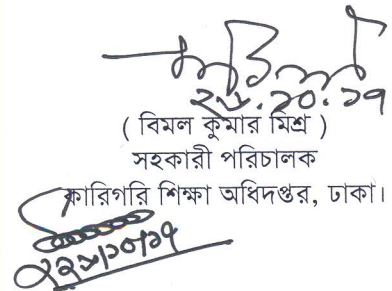 ২৮.১০.১৭
( বিমল কুমার মিশ্র )
সহকারী পরিচালক
কারিগরি শিক্ষা অধিদপ্তর, ঢাকা।